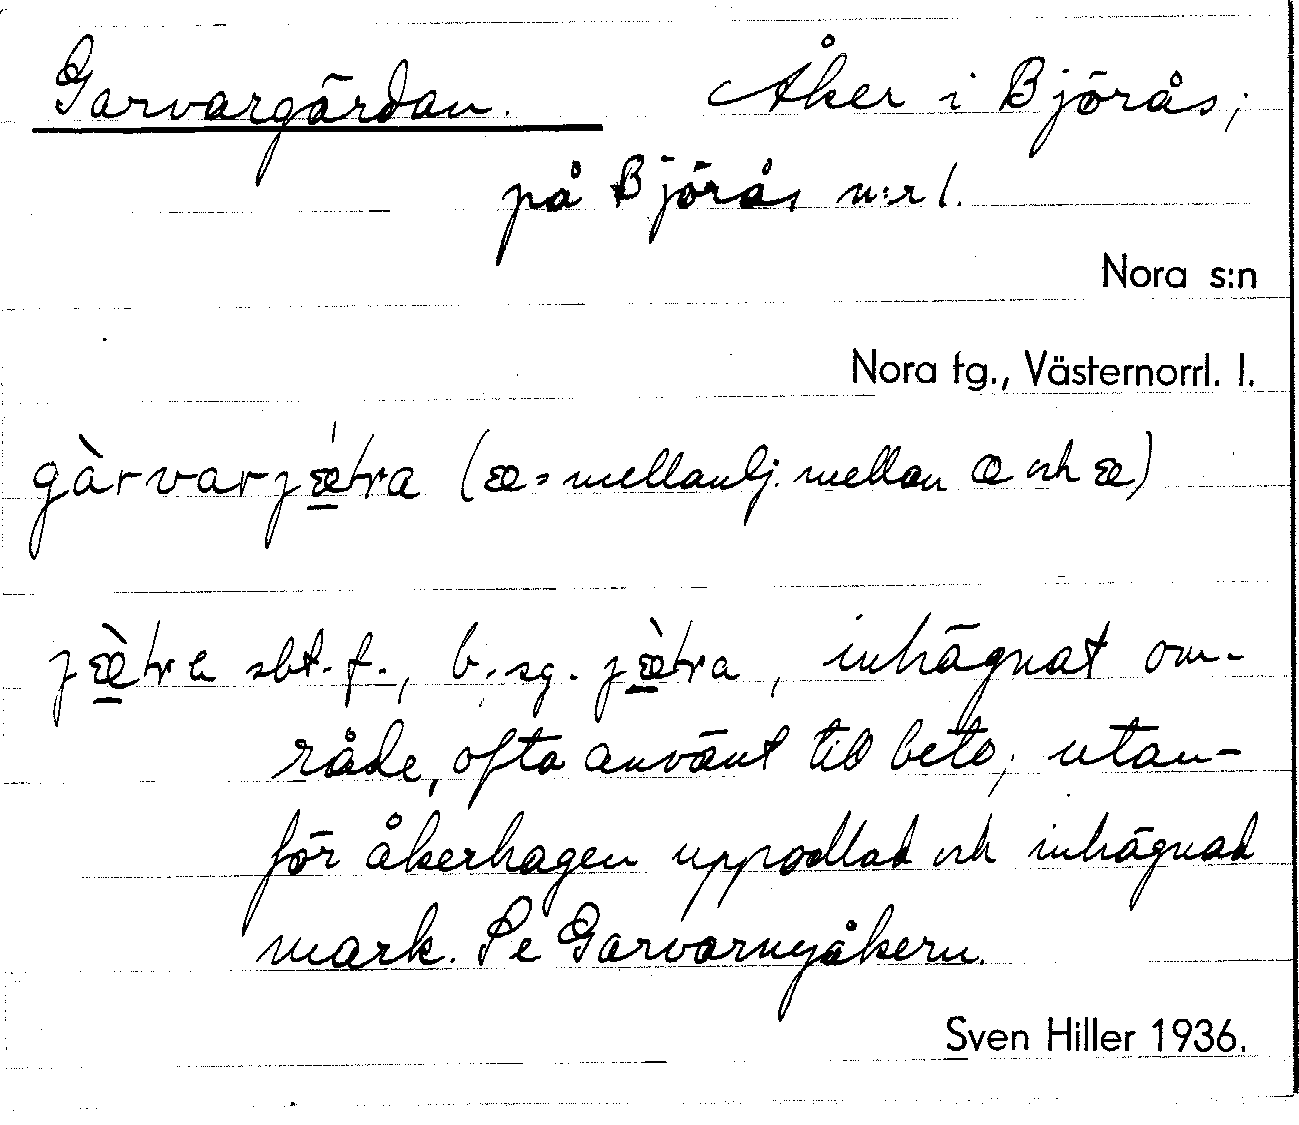 Garvargärdan. Åker i Björås;
på Björås n:r 1.
Nora s:n
Nora tg., Västernorrl. l.
gàrvarjǽ̲tra (æ = mellanlj. mellan a och æ)
jæ̲̀tra sbt. f., b. sg. jæ̲̀tra, inhägnat om-
råde, ofta använt till bete; utan-
för åkerhagen uppodlad och inhägnad
mark. Se Garvarnyåkern.
Sven Hiller 1936.